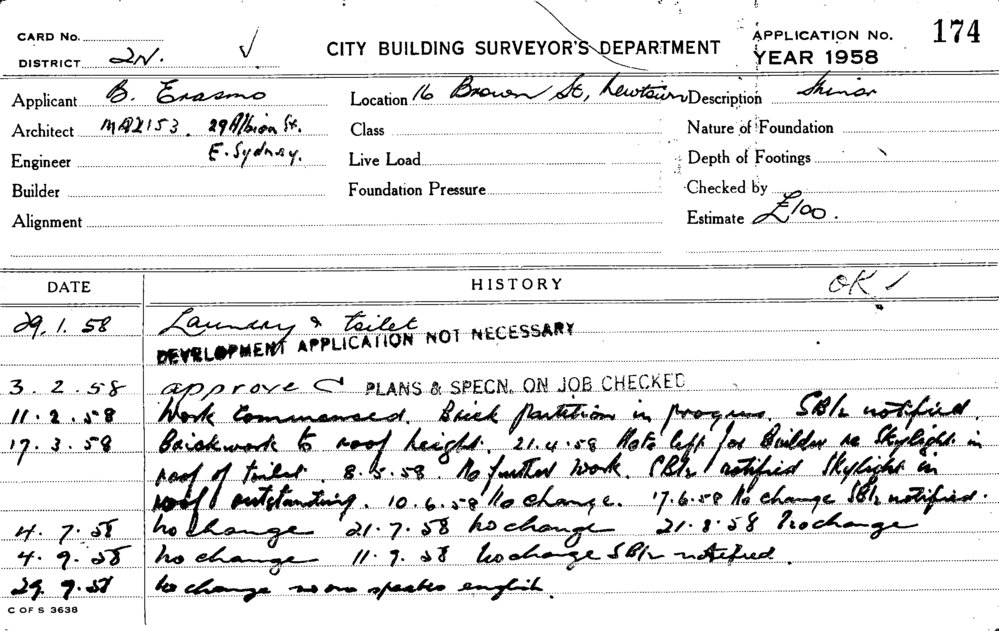 CARD No.
DISTRICT 2N.
CITY BUILDING SURVEYOR'S DEPARTMENT
APPLICATION No. 174
YEAR 1958
Applicant B. Erasmo
Location 16 Brown St, Newtown
Description Minor
Architect MA2153. 29 Albion St.
Class
Nature of Foundation
Engineer E. Sydney.
Live Load
Depth of Footings
Builder
Foundation Pressure
Checked by
Alignment
Estimate £100.
DATE HISTORY OK
29.1.58 Laundry & toilet
DEVELOPMENT APPLICATION NOT NECESSARY
3.2.58 approve PLANS & SPECN. ON JOB CHECKED
11.2.58 Work Commensed. Brick partition in progress. notified.
17.3.58 Brickwork to roof height. 21.4.58 Note left for Builder re Skylight in
roof of toilet. 8.5.58. No further work. notified Skylight in
roof outstanding. 10.6.58 No change. 17.6.58 No change notified.
4.7.58 No change 21.7.58 No change 21.8.58 No change
4.9.58 No change 11.9.58 No change notified.
29.9.58 No change no one speaks english.
C OF S 3638